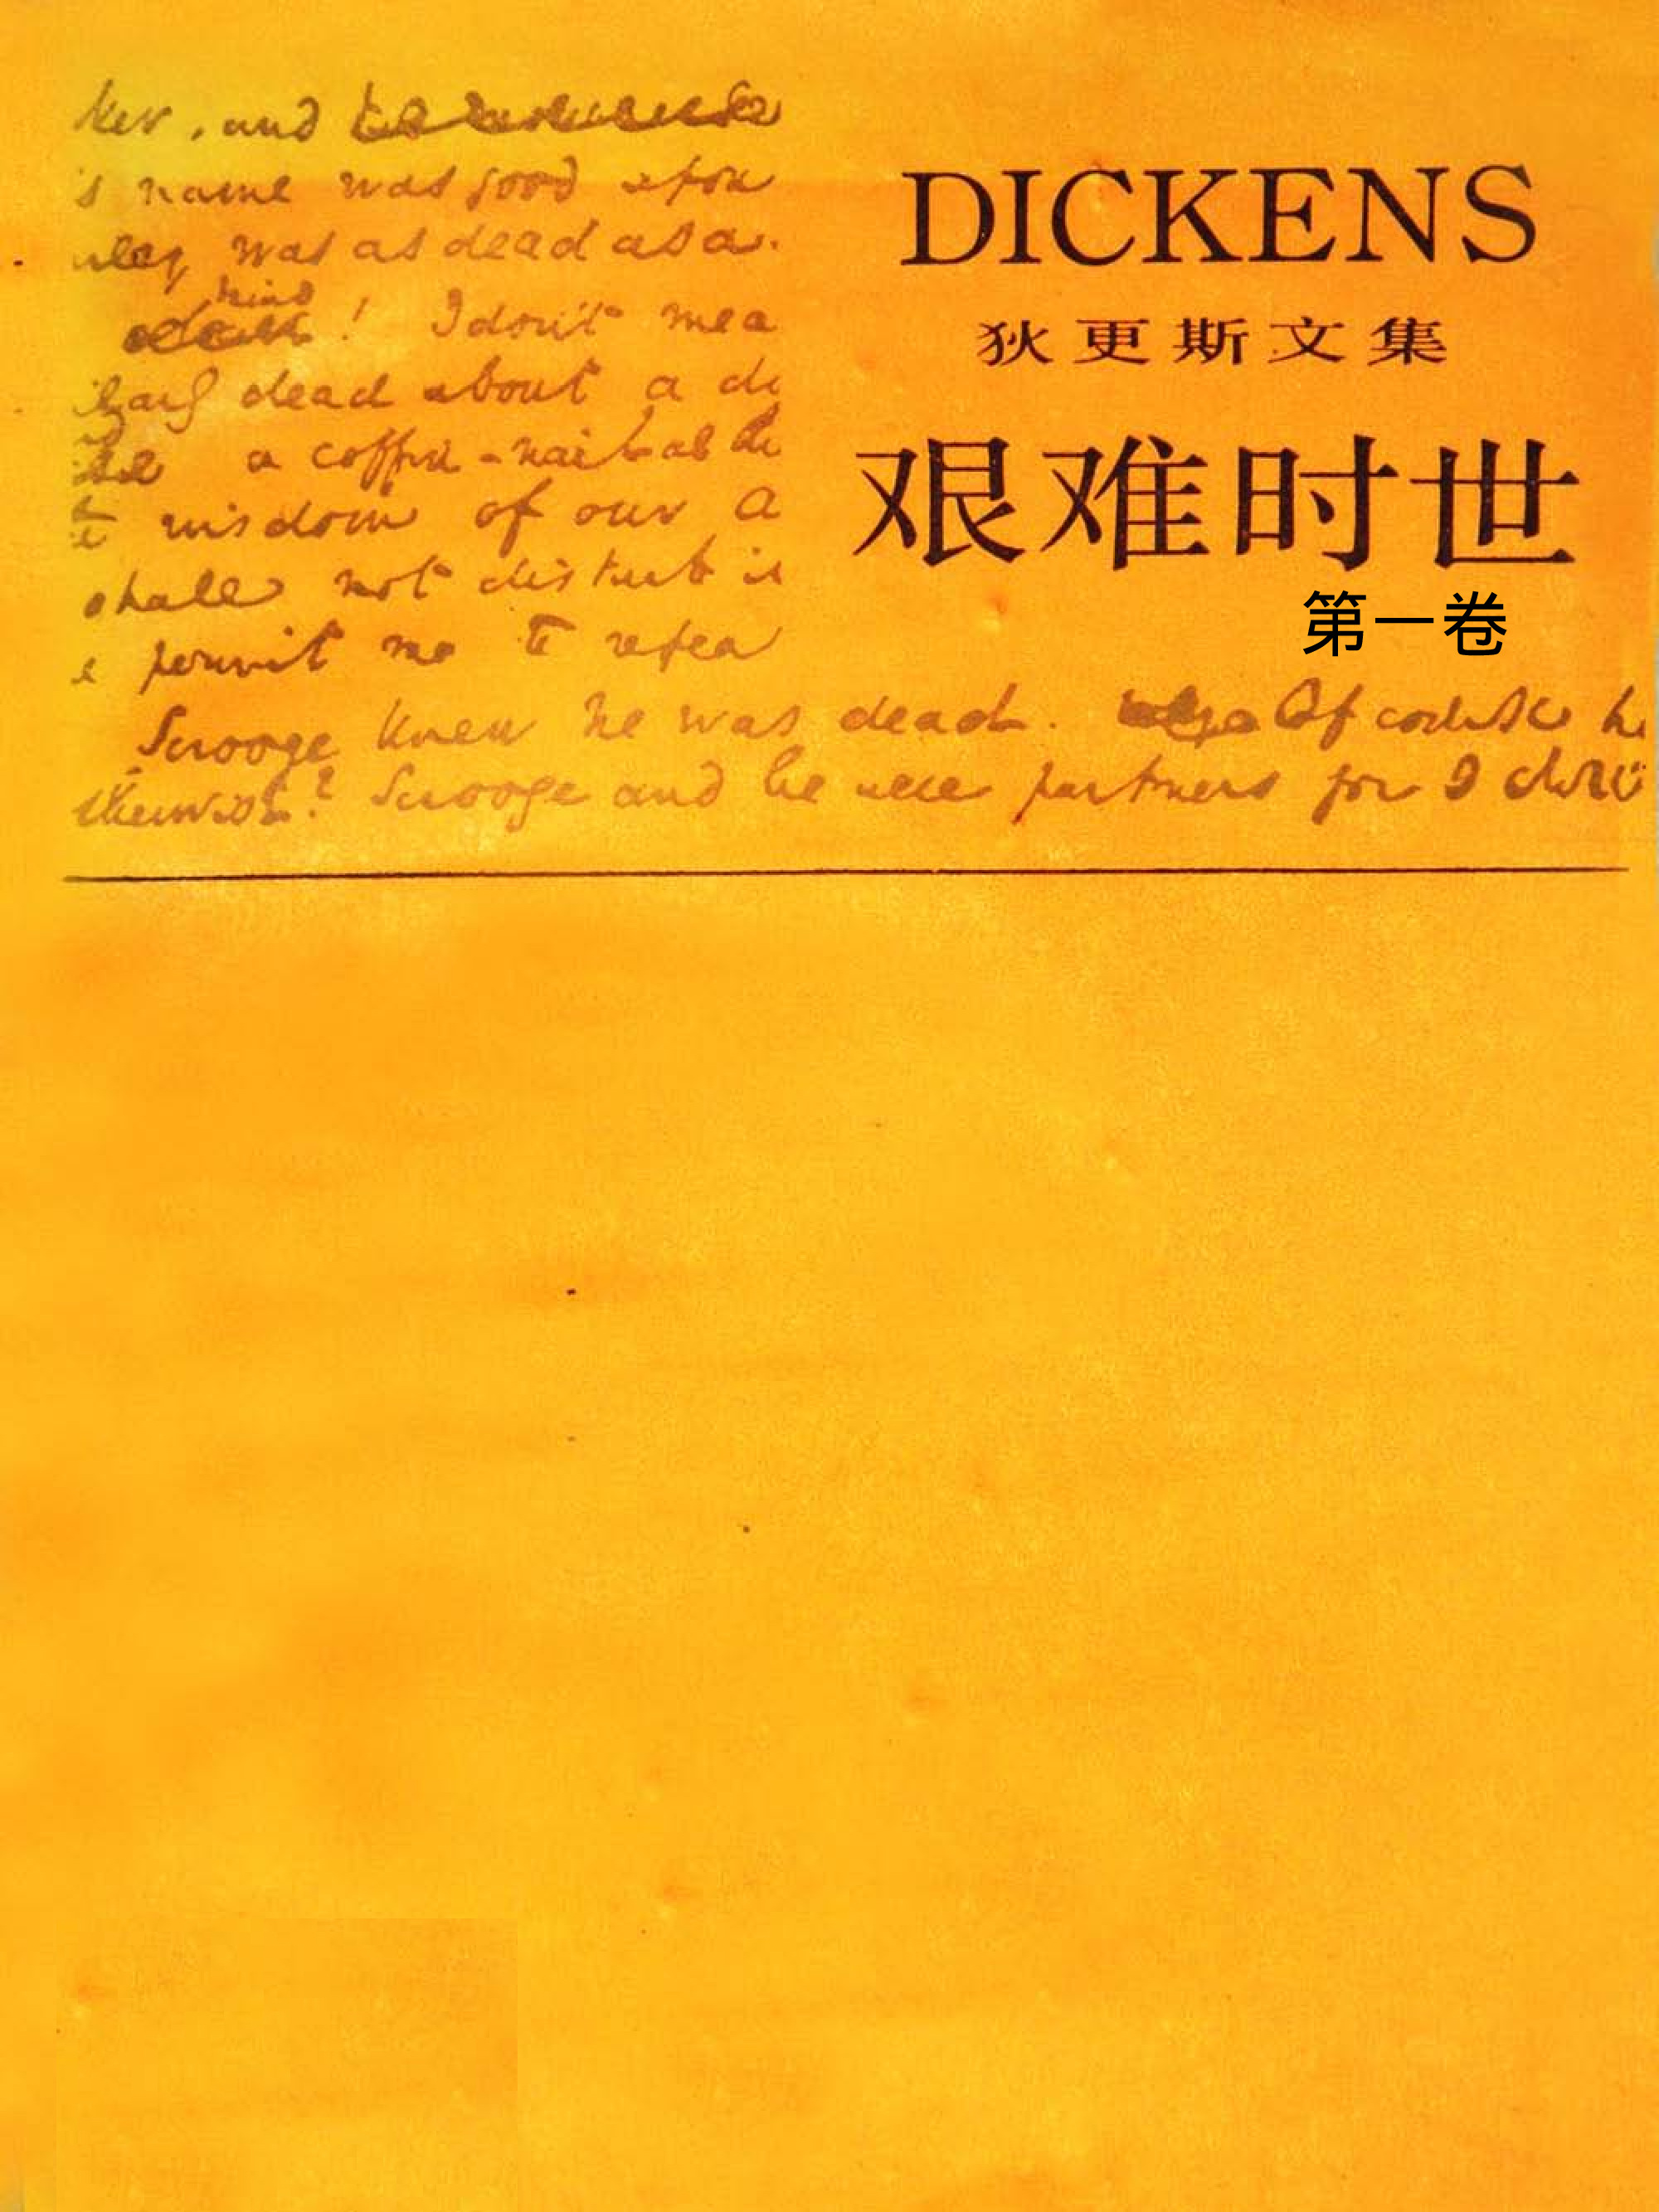 ker, and
's name was good upon
was as dead as a
kind
! I don't mea
dead about a de
a coffin-nail as the
wisdom of our a
shall not disturb it
permit me to repea
DICKENS
狄更斯文集
艰难时世
第一卷
Scrooge knew he was dead. Of course h
? Scrooge and he were partners for I don't